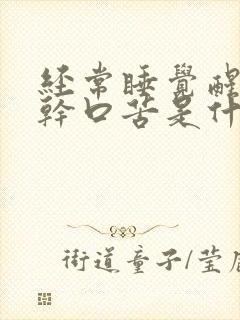 经常睡覺醒
幹口苦是什
街道童子/莹